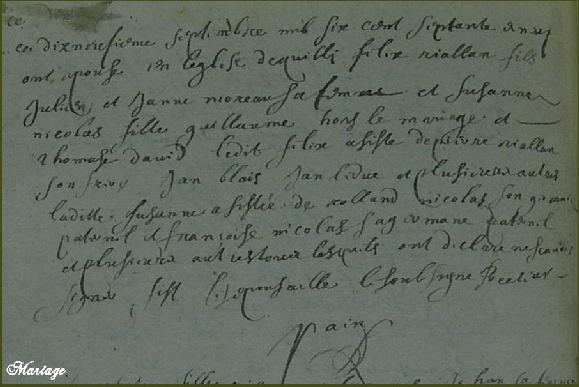 ce dixneufieme septembre mil six cent septante
ont espouse en leglise de quilli felix riallan fils
Julien et Janne moreau sa femme et susanne
nicolas fille guillaume hors le mariage et
Thomase david ledit felix asiste de pierre riallan
son frere Jan blais Jan et plusieurs autres
laditte susanne asistée de rolland nicolas son
paternel et francoise nicolas sa paternel
et plusieurs autres lesquels ont declare ne scavoir
signer le soubsigne
pain
Mariage